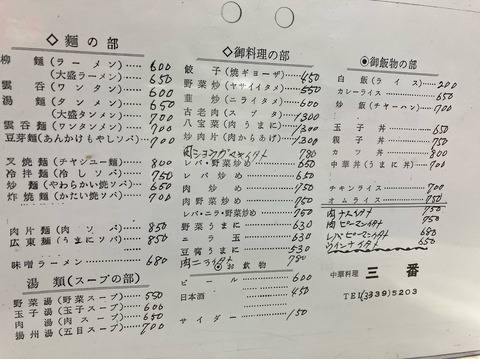 ◇麺の部
柳麺(ラーメン)……600
(大盛ラーメン)……650
雲呑(ワンタン)……600
湯麺(タンメン)……650
(大盛タンメン)……700
雲呑麺(ワンタンメン)……700
豆芽麺(あんかけもやしソバ)……700
叉焼麺(チャシュー麺)……800
冷拌麺(冷しソバ)……750
炒麺(やわらかい焼ソバ)……650
炸焼麺(かたい焼ソバ)……700
肉片麺(肉ソバ)……850
広東麺(うまにソバ)……850
味噌ラーメン……680
湯類(スープの部)
野菜湯(野菜スープ)……550
玉子湯(玉子スープ)……600
肉湯(肉スープ)……650
揚州湯(五目スープ)……700
◇御料理の部
餃子(焼ギョーザ)……450
野菜炒(ヤサイイタメ)……550
韮炒(ニライタメ)……600
古老肉(スブタ)……1300
八宝菜(肉うまに)……1300
炒肉片(肉からあげ)……1300
780
レバ・野菜炒め……650
レバ炒め……650
肉炒め……750
肉野菜炒め……750
レバ・ニラ・野菜炒め……750
野菜うまに……630
ニラ玉……630
豆腐うまに……630
肉ニライタメ 750
◎お飲物
ビール……600
日本酒……450
サイダー……150
◎御飯物の部
白飯(ライス)……200
カレーライス……650
炒飯(チャーハン)……700
玉子丼……650
親子丼……750
カツ丼……800
中華丼(うまに丼)……700
チキンライス……700
オムライス……750
肉ナスイタメ 750
肉ピーマンイタメ 750
レバピーマンイタメ 680
ウインナイタメ 650
中華料理 三番
TEL(3339)5203